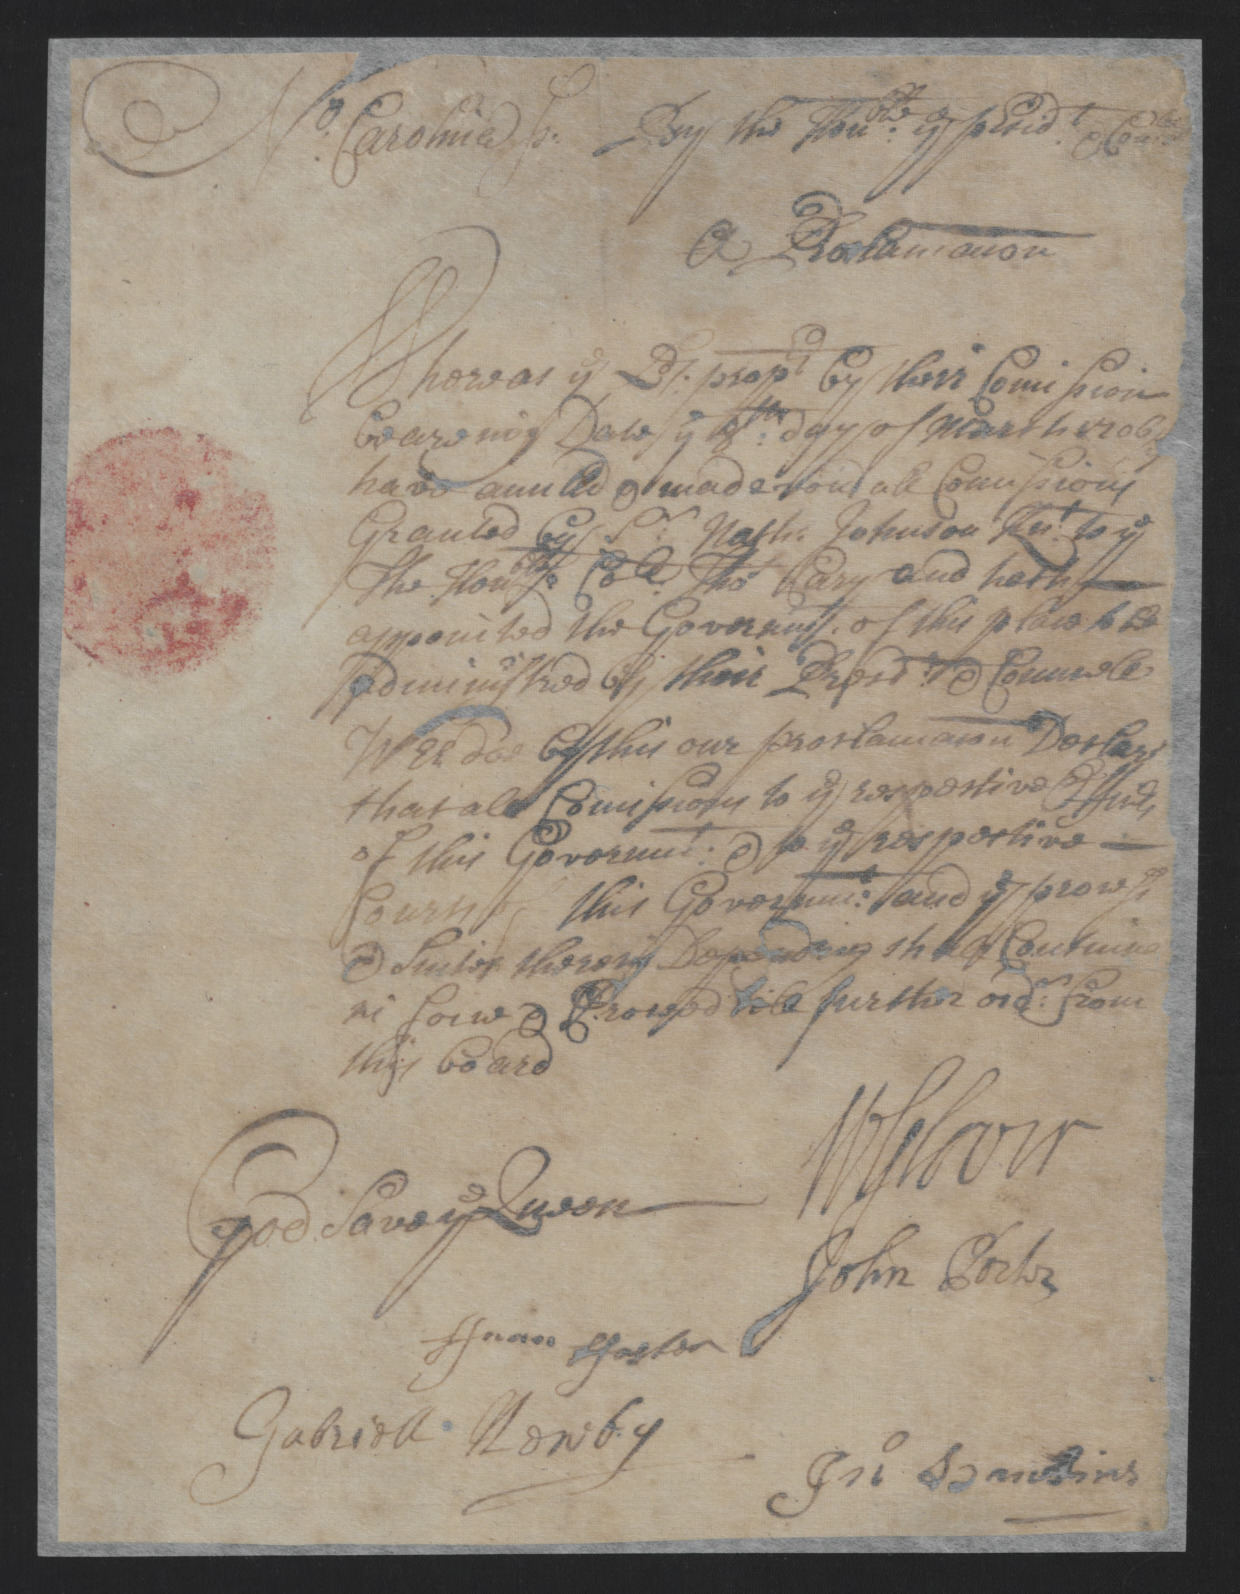 No. Carolina ss. By the Honble. ye presidt. & Councl
A Proclamation
Whereas ye Lds. proprs by their Comission
beareing Date ye day of March 1706/
have anulled & made void all Comissions
Granted by Sr. Nath: Johnson Knt. to ye
the Honble. Coll. Tho Cary and hath
appointed the Governmt. of this place to be
administred by their Presdt. & Councele
WEE doe by this our proclamation Declare
that all Comissions to ye respective Officrs
of this Governmt. & to ye respective
Courts of this Governmt: and ye process
& Suites therein Depending shall Continue
in force & Proceed till further ordr. from
this board
God Save ye Queen
W Glover
John Porter
ffrancs ffoster
Gabriell Newby
Jno Hawkins